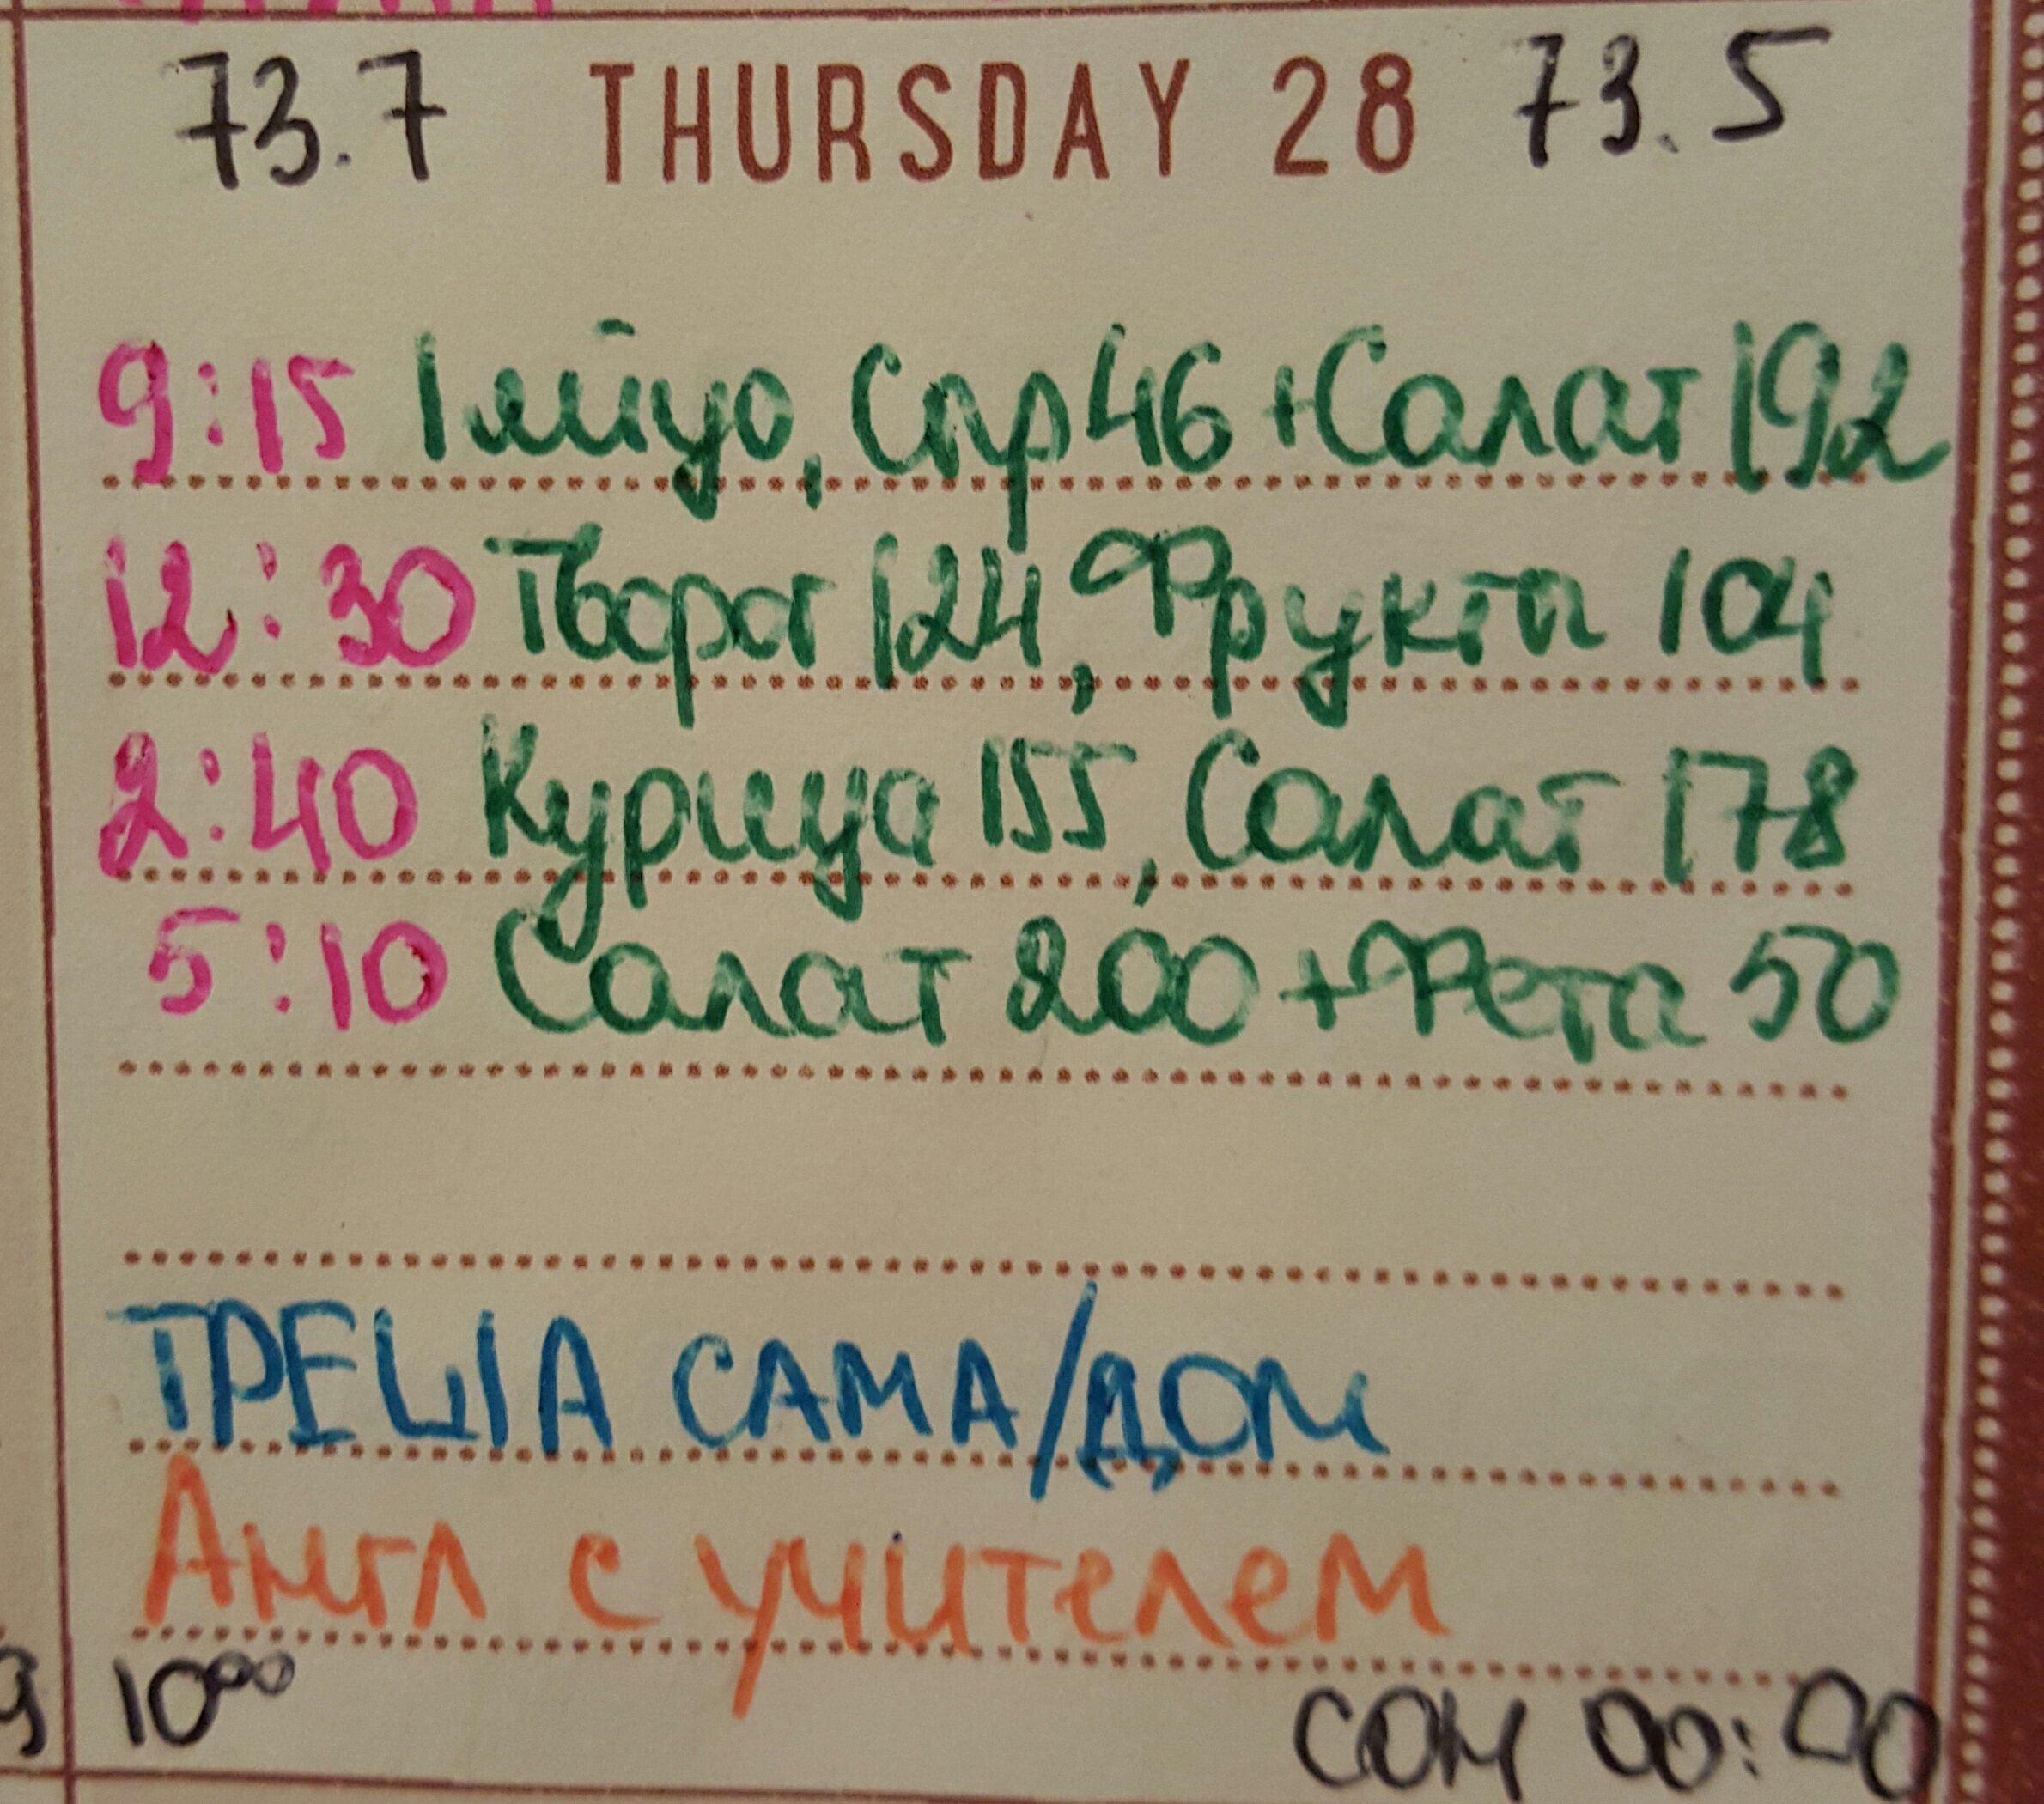 73.7 THURSDAY 28 73.5
9:15 1 яйцо, Сыр 46 + Салат 192
12:30 Творог 124, Фрукты 104
2:40 Курица 155, Салат 178
5:10 Салат 200 + Фета 50
САМА/ДОМ
Англ с учителем
9 10⁰⁰ СОН 00:00